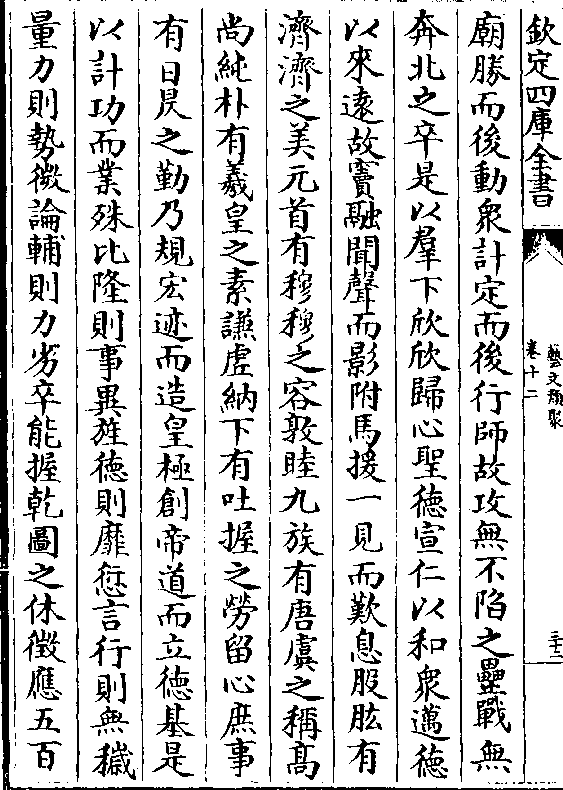 欽定四庫全書
藝文類聚
卷十二
三十二
廟勝而後動衆計定而後行師故攻無不陷之壘戰無
奔北之卒是以羣下欣欣歸心聖德宣仁以和衆邁德
以來遠故竇融聞聲而影附馬援一見而歎息股肱有
濟濟之美元首有穆穆之容敦睦九族有唐虞之稱髙
尚純朴有羲皇之素謙虛納下有吐握之勞留心庶事
有日昃之勤乃規宏迹而造皇極創帝道而立德基是
以計功而業殊比隆則事異旌德則靡愆言行則無穢
量力則勢微論輔則力劣卒能握乾圖之休徵應五百